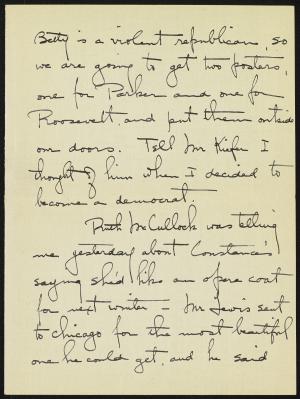 Betty is a violent republican, so
we are going to get two posters,
one for Parker and one for
Roosevelt, and put them outside
our doors. Tell Mr Kiefer I
thought of him when I decided to
become a democrat.
Ruth McCullock was telling
me yesterday about Constance's
saying she'd like an opera coat
for next winter – Mr Lewis sent
to Chicago for the most beautiful
one he could get, and he said